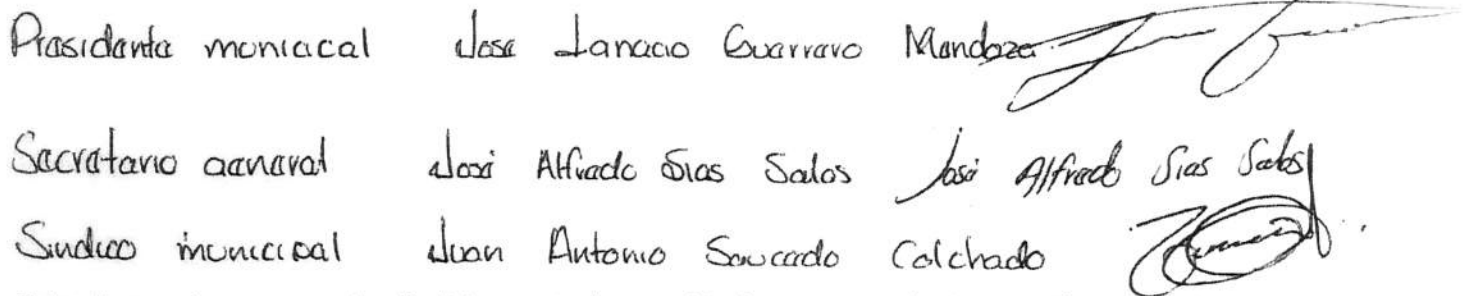 Presidente municipal José Ignacio Guerrero Mendoza
Secretario general José Alfredo Sias Salos José Alfredo Sias Salos
Sindico municipal Juan Antonio Saucedo Colchado